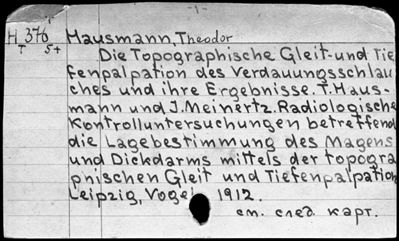 -1-
H 376 Hausmann, Theodor
T 5+
Die Topographische Gleit- und Tie
fenpalpation des Verdauungsschlau
ches und ihre Ergebnisse. T. Haus-
mann und J. Meinertz. Radiologische
Kontrolluntersuchungen betreffend
die Lagebestimmung des Magens
und Dickdarms mittels der topogra
phischen Gleit und Tiefenpalpation
Leipzig, Vogel 1912.
см. след карт.